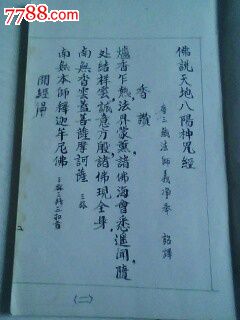 7788.com
佛說天地八陽神咒經
唐三藏法師義淨奉 詔譯
香讚
爐香乍熱法界蒙薰諸佛海會悉遙聞隨
處結祥雲誠意方殷諸佛現全身
南無香雲蓋菩薩摩訶薩 三称
南無本師釋迦牟尼佛 三称三拜三
開經偈
(二)